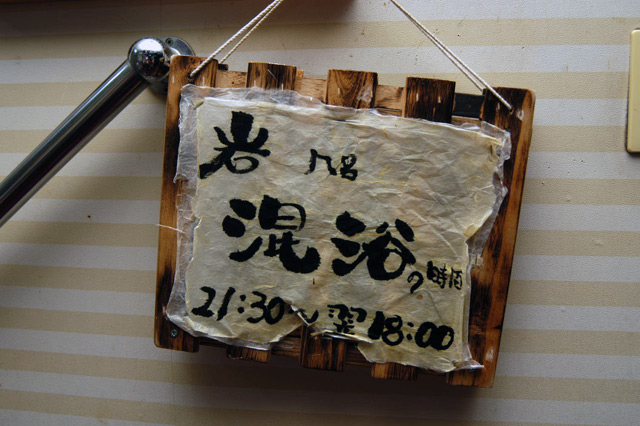 岩風呂
混浴の時間
21:30〜翌18:00